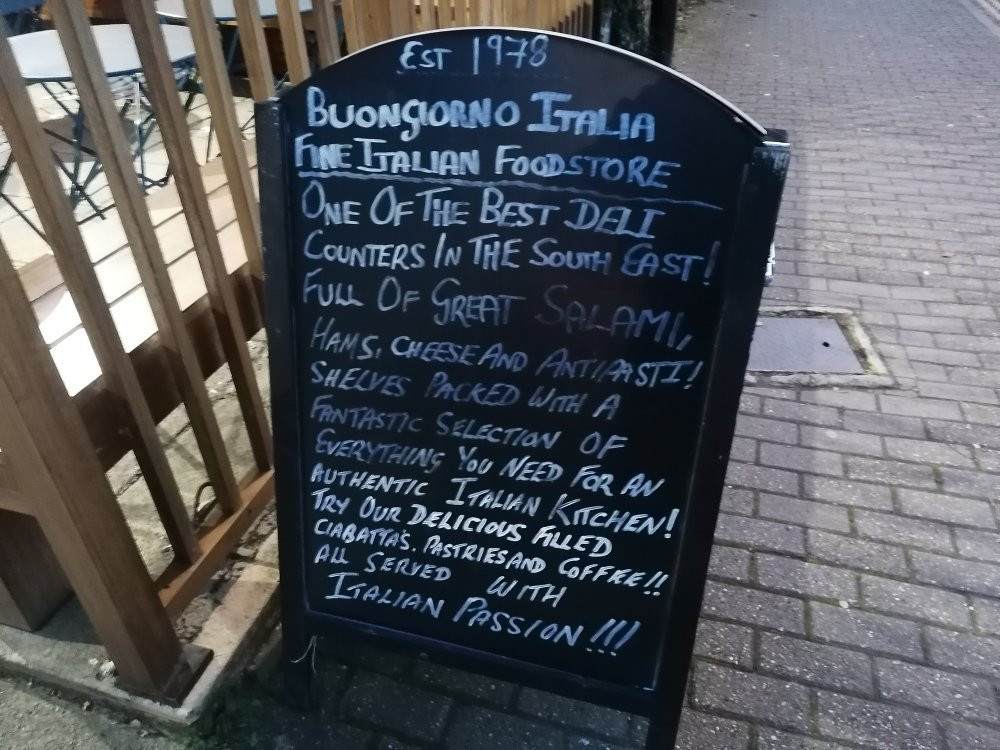 EST 1978
BUONGIORNO ITALIA
FINE ITALIAN FOODSTORE
ONE OF THE BEST DELI
COUNTERS IN THE SOUTH EAST!
FULL OF GREAT SALAMI,
HAMS, CHEESE AND ANTIPASTI!
SHELVES PACKED WITH A
FANTASTIC SELECTION OF
EVERYTHING YOU NEED FOR AN
AUTHENTIC ITALIAN KITCHEN!
TRY OUR DELICIOUS FILLED
CIABATTA'S. PASTRIES AND COFFEE!!
ALL SERVED WITH
ITALIAN PASSION!!!